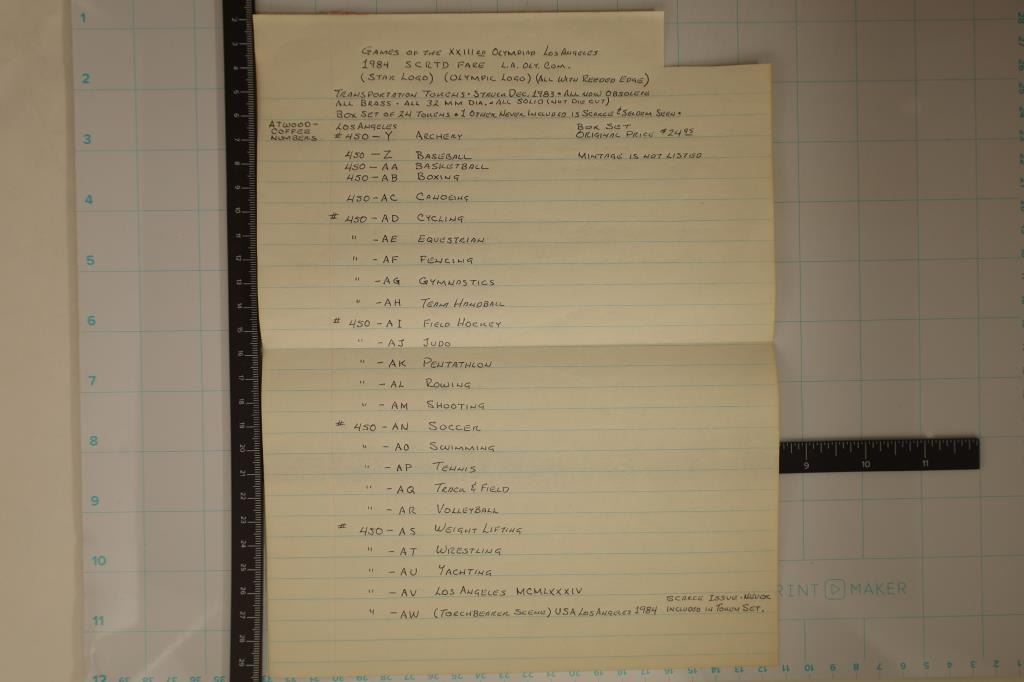 GAMES OF THE XXIII RD OLYMPIAD LOS ANGELES
1984 SCRTD FARE L.A. OLY. COM.
(STAR LOGO) (OLYMPIC LOGO) (ALL WITH REEDED EDGE)
TRANSPORTATION TOKENS • STRUCK DEC. 1983 • ALL NOW OBSOLETE
ALL BRASS • ALL 32 MM DIA. • ALL SOLID (NOT DIE CUT)
BOX SET OF 24 TOKENS • 1 OTHER NEVER INCLUDED IS SCARCE & SELDOM SEEN •
ATWOOD-
COFFEE
NUMBERS
LOS ANGELES
# 450 - Y ARCHERY
BOX SET
ORIGINAL PRICE $24.95
450 - Z BASEBALL MINTAGE IS NOT LISTED
450 - AA BASKETBALL
450 - AB BOXING
450 - AC CANOEING
# 450 - AD CYCLING
" - AE EQUESTRIAN
" - AF FENCING
" - AG GYMNASTICS
" - AH TEAM HANDBALL
# 450 - AI FIELD HOCKEY
" - AJ JUDO
" - AK PENTATHLON
" - AL ROWING
" - AM SHOOTING
# 450 - AN SOCCER
" - AO SWIMMING
" - AP TENNIS
" - AQ TRACK & FIELD
" - AR VOLLEYBALL
# 450 - AS WEIGHT LIFTING
" - AT WRESTLING
" - AU YACHTING
" - AV LOS ANGELES MCMLXXXIV
" - AW (TORCHBEARER SCENE) USA LOS ANGELES 1984
SCARCE ISSUE - NEVER
INCLUDED IN TOKEN SET.
MAKER